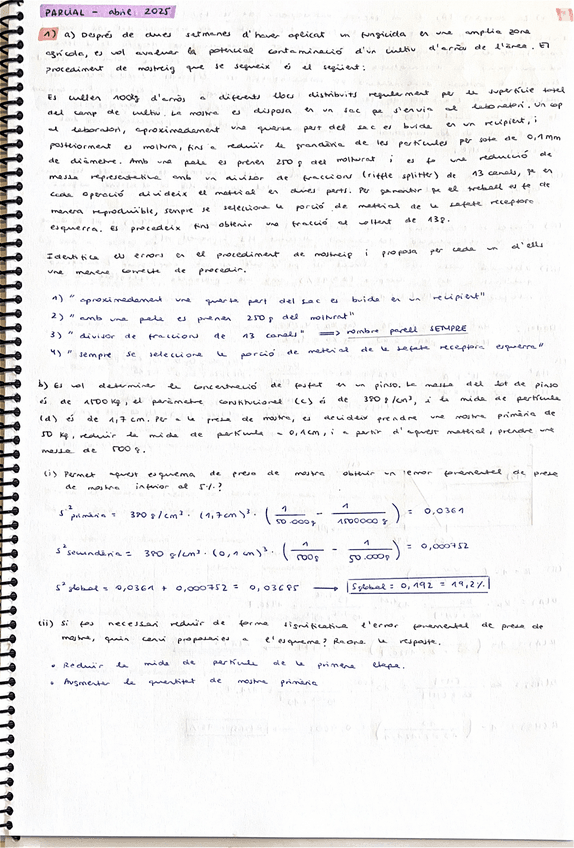 PARCIAL - abril 2025
1) a) Després de dues setmanes d'haver aplicat un fungicida en una amplia zona
agrícola, es vol avaluar la potencial contaminació d'un cultiu d'arròs de l'àrea. El
procediment de mostreig que se segueix és el següent:
Es cullen 100kg d'arròs a diferents llocs distribuïts regularment per la superfície total
del camp de cultiu. La mostra es disposa en un sac que s'envia al laboratori. Un cop
al laboratori, aproximadament una quarta part del sac es buida en un recipient, i
posteriorment es moltura, fins a reduir la grandària de les partícules per sota de 0,1mm
de diàmetre. Amb una pala es prenen 250g del molturat i es fa una reducció de
massa representativa amb un divisor de fraccions (riffle splitter) de 13 canals, ja en
cada operació divideix el material en dues parts. Per garantir que el treball es fa de
manera reproduïble, sempre se selecciona la porció de material de la safata receptora
esquerra. Es procedeix fins obtenir una fracció al voltant de 13g.
Identifica els errors en el procediment de mostreig i proposa per cada un d'ells
una manera correcta de procedir.
1) "aproximadament una quarta part del sac es buida en un recipient"
2) "amb una pala es prenen 250g del molturat"
3) "divisor de fraccions de 13 canals" ⟹ nombre parell SEMPRE
4) "sempre se selecciona la porció de material de la safata receptora esquerra"
b) Es vol determinar la concentració de fosfat en un pinso. La massa del lot de pinso
és de 1500 kg, el paràmetre constitucional (c) és de 380 g/cm³, i la mida de partícula
(d) és de 1,7 cm. Per a la presa de mostra, es decideix prendre una mostra primària de
50 kg, reduir la mida de partícula a 0,1cm, i a partir d'aquest material, prendre una
massa de 500 g.
(i) Permet aquest esquema de presa de mostra obtenir un error fonamental de presa
de mostra inferior al 5%?
s² primària = 380 g/cm³ · (1,7cm)³ · (1/50.000g - 1/1500000g) = 0,0361
s² secundària = 380 g/cm³ · (0,1cm)³ · (1/500g - 1/50.000g) = 0,000752
s² global = 0,0361 + 0,000752 = 0,03685 ⟶ Sglobal = 0,192 = 19,2%
(ii) Si fos necessari reduir de forma significativa l'error fonamental de presa de
mostra, quin canvi proposaries a l'esquema? Raona la resposta.
• Reduir la mida de partícula de la primera etapa.
• Augmentar la quantitat de mostra primària